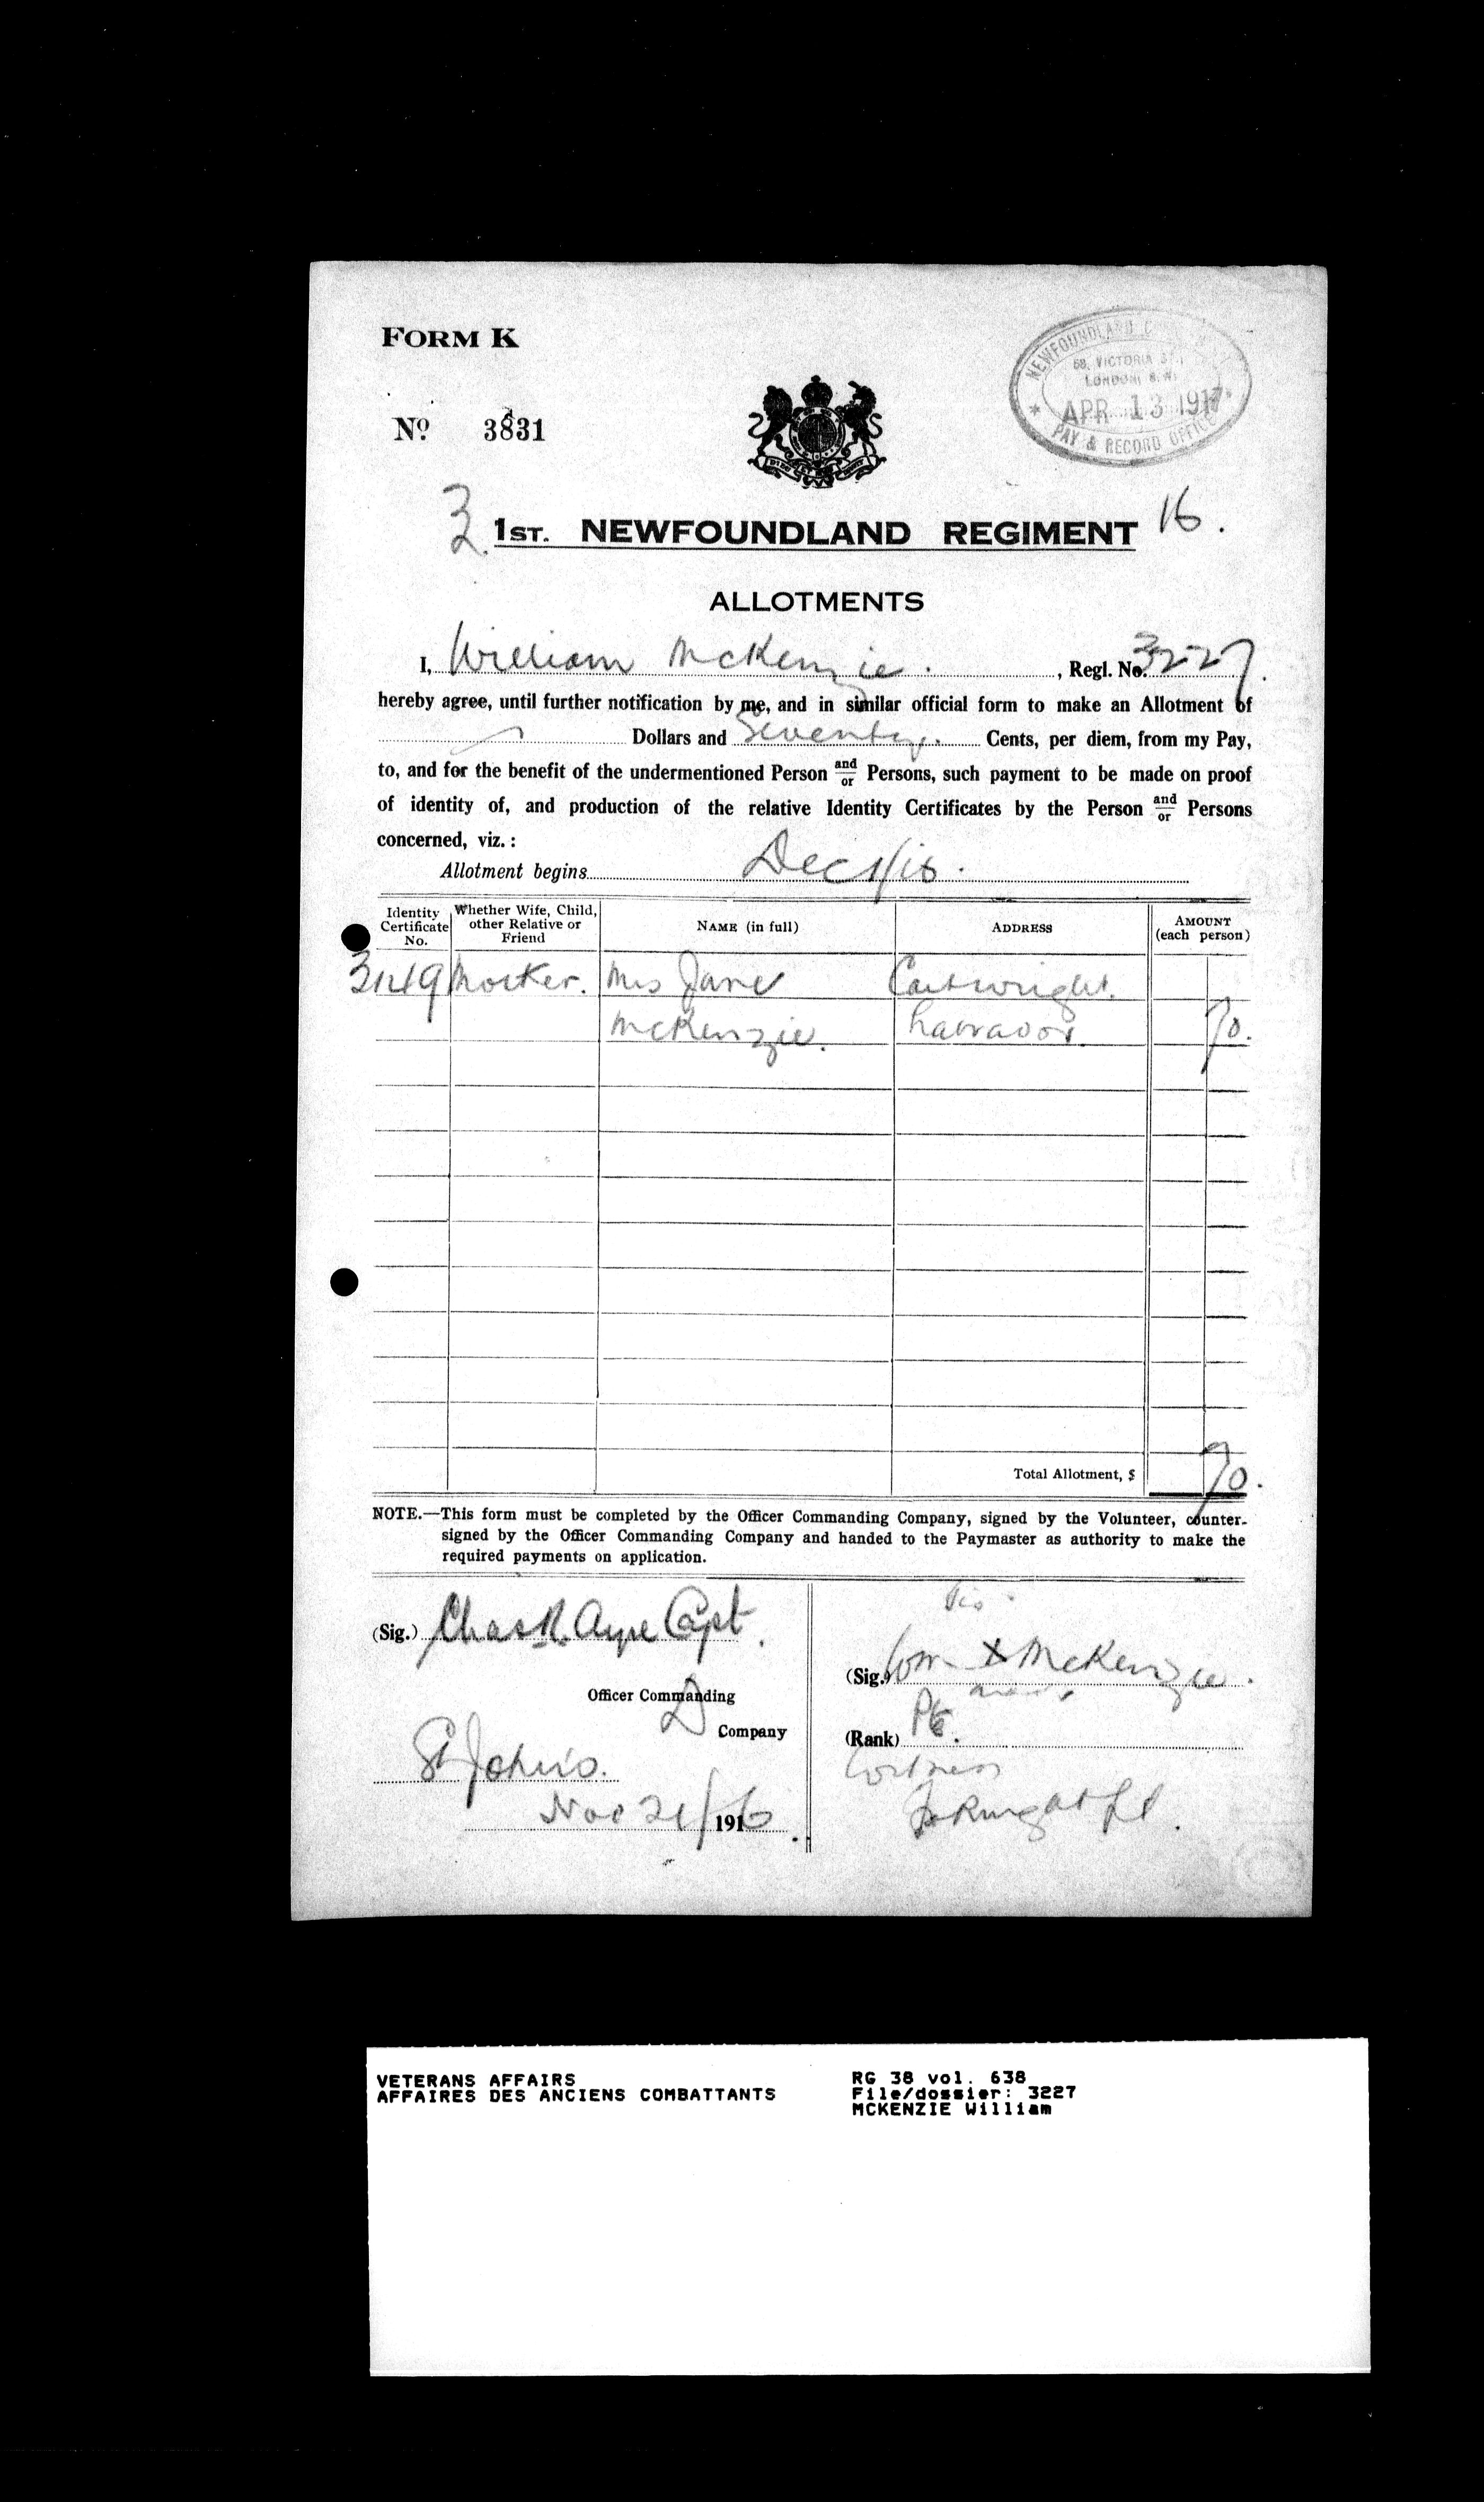 FORM K
NEWFOUNDLAND
58, VICTORIA ST.,
LONDON, S.W.
APR 13 1917
PAY & RECORD OFFICE
No. 3831
3 1ST. NEWFOUNDLAND REGIMENT 16.
ALLOTMENTS
I, William McKenzie. , Regl. No. 3227.
hereby agree, until further notification by me, and in similar official form to make an Allotment of
Dollars and Seventy. Cents, per diem, from my Pay,
to, and for the benefit of the undermentioned Person and/or Persons, such payment to be made on proof
of identity of, and production of the relative Identity Certificates by the Person and/or Persons
concerned, viz. :
Allotment begins Dec 1/16.
Identity Certificate No. Whether Wife, Child, other Relative or Friend NAME (in full) ADDRESS AMOUNT (each person)
3149 Mother. Mrs Jane Cartwright.
McKenzie. Labrador. 70.
Total Allotment, $ 70.
NOTE.—This form must be completed by the Officer Commanding Company, signed by the Volunteer, counter-
signed by the Officer Commanding Company and handed to the Paymaster as authority to make the
required payments on application.
(Sig.) Chas R. Ayre Capt.
Officer Commanding
D Company
St John's.
Nov 21/ 1916
his
(Sig.) Wm X McKenzie.
mark
(Rank) Pte.
Witness
VETERANS AFFAIRS
AFFAIRES DES ANCIENS COMBATTANTS
RG 38 vol. 638
File/dossier: 3227
MCKENZIE William